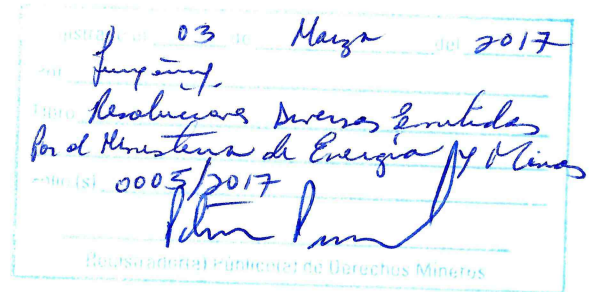 03 de Marzo del 2017
Resoluciones Diversas Emitidas
Por el Ministerio de Energía y Minas
Folio(s) 0005/2017
Registrador(a) Público(a) de Derechos Mineros